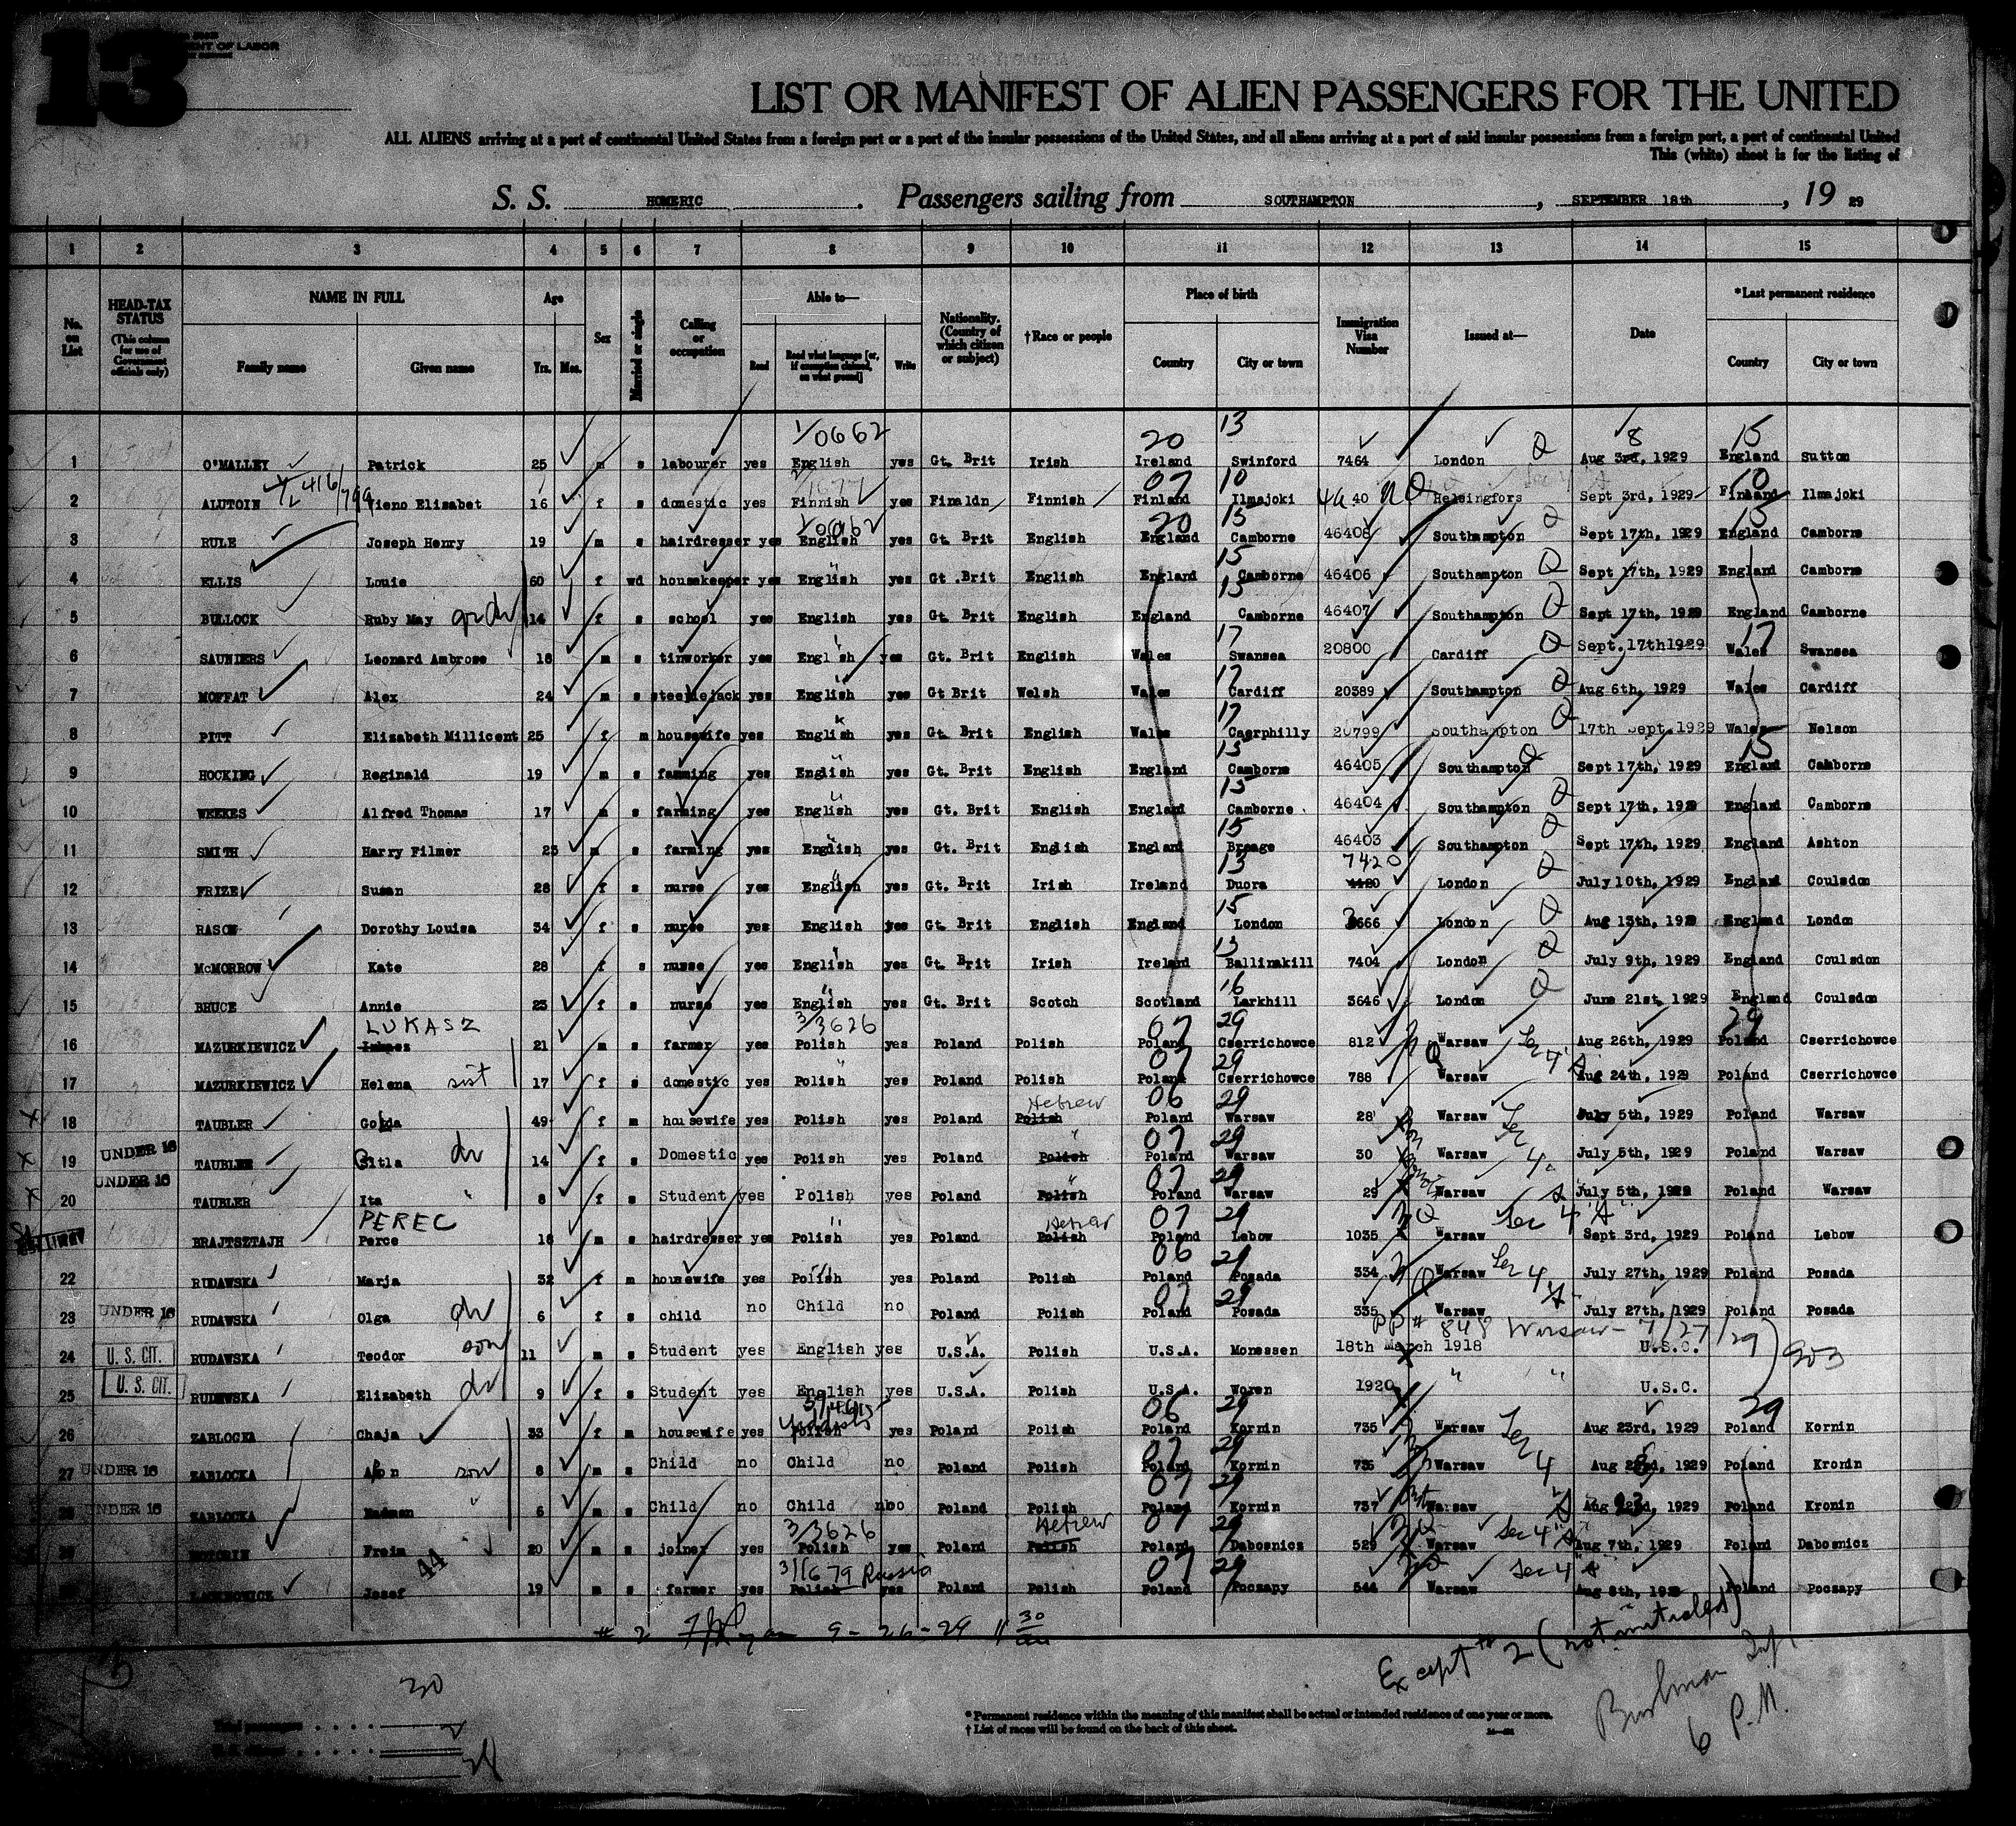 13
ENT OF LABOR
LIST OR MANIFEST OF ALIEN PASSENGERS FOR THE UNITED
ALL ALIENS arriving at a port of continental United States from a foreign port or a port of the insular possessions of the United States, and all aliens arriving at a port of said insular possessions from a foreign port, a port of continental United
This (white) sheet is for the listing of
S. S. HOMERIC. Passengers sailing from SOUTHAMPTON, SEPTEMBER 18th, 19 29
1 2 3 4 5 6 7 8 9 10 11 12 13 14 15
No. on List HEAD-TAX STATUS (This column for use of Government officials only) NAME IN FULL Family name Given name Age Yrs. Mos. Sex Married or single Calling or occupation Able to— Read Read what language [or, if exemption claimed, on what ground] Write Nationality. (Country of which citizen or subject) †Race or people Place of birth Country City or town Immigration Visa Number Issued at— Date *Last permanent residence Country City or town
1/0662 20 13 8 15
1 O'MALLEY Patrick 25 m s labourer yes English yes Gt. Brit Irish Ireland Swinford 7464 London Q Aug 3rd, 1929 England Sutton
07 10 10
2 ALUTOIN Tieno Elisabet 16 f s domestic yes Finnish yes Finaldn Finnish Finland Ilmajoki 40 Helsingfors Sept 3rd, 1929 Finland Ilmajoki
1/0062 20 15 15
3 RULE Joseph Henry 19 m s hairdresser yes English yes Gt. Brit English England Camborne 46408 Southampton Q Sept 17th, 1929 England Camborne
15
4 ELLIS Louie 60 f wd housekeeper yes English yes Gt .Brit English England Camborne 46406 Southampton Q Sept 17th, 1929 England Camborne
15
5 BULLOCK Ruby May 14 f s school yes English yes Gt. Brit English England Camborne 46407 Southampton Q Sept 17th, 1929 England Camborne
17 17
6 SAUNDERS Leonard Ambrose 18 m s tinworker yes English yes Gt. Brit English Wales Swansea 20800 Cardiff Q Sept.17th1929 Wales Swansea
17
7 MOFFAT Alex 24 m s steeplejack yes English yes Gt Brit Welsh Wales Cardiff 20389 Southampton Q Aug 6th, 1929 Wales Cardiff
17
8 PITT Elizabeth Millicent 25 f m housewife yes English yes Gt. Brit English Wales Caerphilly 20799 Southampton Q 17th Sept.1929 Wales Nelson
15 15
9 HOCKING Reginald 19 m s farming yes English yes Gt. Brit English England Camborne 46405 Southampton Q Sept 17th, 1929 England Camborne
15
10 WEEKES Alfred Thomas 17 m s farming yes English yes Gt. Brit English England Camborne 46404 Southampton Q Sept 17th, 1929 England Camborne
15
11 SMITH Harry Filmer 25 m s farming yes English yes Gt. Brit English England Breage 46403 Southampton Q Sept 17th, 1929 England Ashton
13 7420
12 FRIZE Susan 28 f s nurse yes English yes Gt. Brit Irish Ireland Duora London Q July 10th, 1929 England Coulsdon
15
13 RASON Dorothy Louisa 34 f s nurse yes English yes Gt. Brit English England London 3666 London Q Aug 13th, 1929 England London
13
14 McMORROW Kate 28 f s nurse yes English yes Gt. Brit Irish Ireland Ballinakill 7404 London Q July 9th, 1929 England Coulsdon
16
15 BRUCE Annie 23 f s nurse yes English yes Gt. Brit Scotch Scotland Larkhill 3646 London Q June 21st, 1929 England Coulsdon
LUKASZ 3/3626 07 29 29
16 MAZURKIEWICZ 21 m s farmer yes Polish yes Poland Polish Poland Cserrichowce 812 Warsaw Sec 4 Aug 26th, 1929 Poland Cserrichowce
07 29
17 MAZURKIEWICZ Helena sist 17 f s domestic yes Polish yes Poland Polish Poland Cserrichowce 788 Warsaw Aug 24th, 1929 Poland Cserrichowce
Hebrew 06 29
18 TAUBLER Golda 49 f m housewife yes Polish yes Poland Polish Poland Warsaw 28 Warsaw Sec July 5th, 1929 Poland Warsaw
07 29
19 UNDER 16 TAUBLER Gitla 14 f s Domestic yes Polish yes Poland Polish Poland Warsaw 30 Warsaw 4 July 5th, 1929 Poland Warsaw
07 29
20 UNDER 16 TAUBLER Ita 8 f s Student yes Polish yes Poland Polish Poland Warsaw 29 Warsaw July 5th, 1929 Poland Warsaw
PEREC Hebrew 07 29
BRAJTSZTAJH Perce 18 m s hairdresser yes Polish yes Poland Polish Poland Lebow 1035 Warsaw Sec 4 "A" Sept 3rd, 1929 Poland Lebow
06 29
22 RUDAWSKA Marja 32 f m housewife yes Polish yes Poland Polish Poland Posada 334 Warsaw Sec 4 July 27th, 1929 Poland Posada
07 29
23 UNDER 16 RUDAWSKA Olga 6 f s child no Child no Poland Polish Poland Posada 335 Warsaw July 27th, 1929 Poland Posada
PP# 848 Warsaw - 7/27/29
24 U. S. CIT. RUDAWSKA Teodor son 11 m s Student yes English yes U.S.A. Polish U.S.A. Monessen 18th March 1918 U.S.C.
25 U. S. CIT. RUDEWSKA Elizabeth 9 f s Student yes English yes U.S.A. Polish U.S.A. Woren 1920 " " U.S.C.
Yiddish 06 29 29
26 ZABLOCKA Chaja 33 f m housewife yes Polish yes Poland Polish Poland Kornin 735 Warsaw Sec Aug 23rd, 1929 Poland Kornin
07 29
27 UNDER 16 ZABLOCKA son 8 m s Child no Child no Poland Polish Poland Kornin 736 Warsaw 4 Aug 1929 Poland Kronin
07 29
28 UNDER 16 ZABLOCKA 6 m s Child no Child nbo Poland Polish Poland Kornin 737 Warsaw Aug 1929 Poland Kronin
3/3626 Hebrew 07 29
Froim 20 m s joiner yes Polish yes Poland Polish Poland Dabosnicz 529 Warsaw Sec 4 "A" Aug 7th, 1929 Poland Dabosnicz
44 Russia 07 29
Josef 19 m s farmer yes Polish yes Poland Polish Poland Poczapy 544 Warsaw Sec 4 Aug 8th, 1929 Poland Poczapy
# 2 9-26-29 11 30
Except # 2 (not initialed)
30
Total passengers
* Permanent residence within the meaning of this manifest shall be actual or intended residence of one year or more.
† List of races will be found on the back of this sheet.
6 P.M.